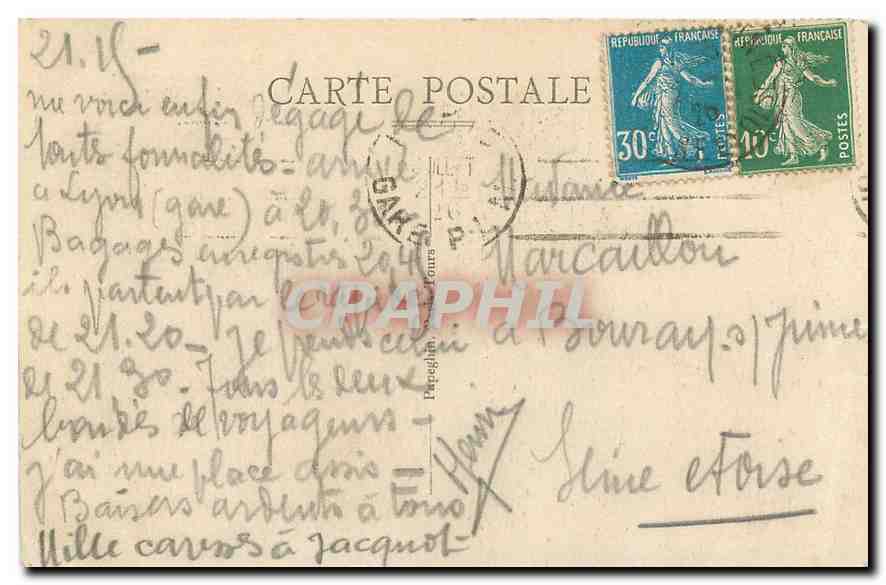 CARTE POSTALE
RÉPUBLIQUE FRANÇAISE
30c
POSTES
RÉPUBLIQUE FRANÇAISE
10c
POSTES
GARE
21.15 -
me voici enfin dégagé de
touts formalités - arrivé
à Lyon (gare) à 20,30
Bagages enregistrés 20.45
ils partent par le rapide
de 21.20 - Je prends celui
de 21.30. Tous les deux
bondés de voyageurs -
j'ai une place assis -
Baisers ardents à tous
Mille caresses à Jacquot
Henri
Madame
Marcaillou
à Bouray s/ Juine
Seine et Oise
Papeghin, Tours
CPAPHIL